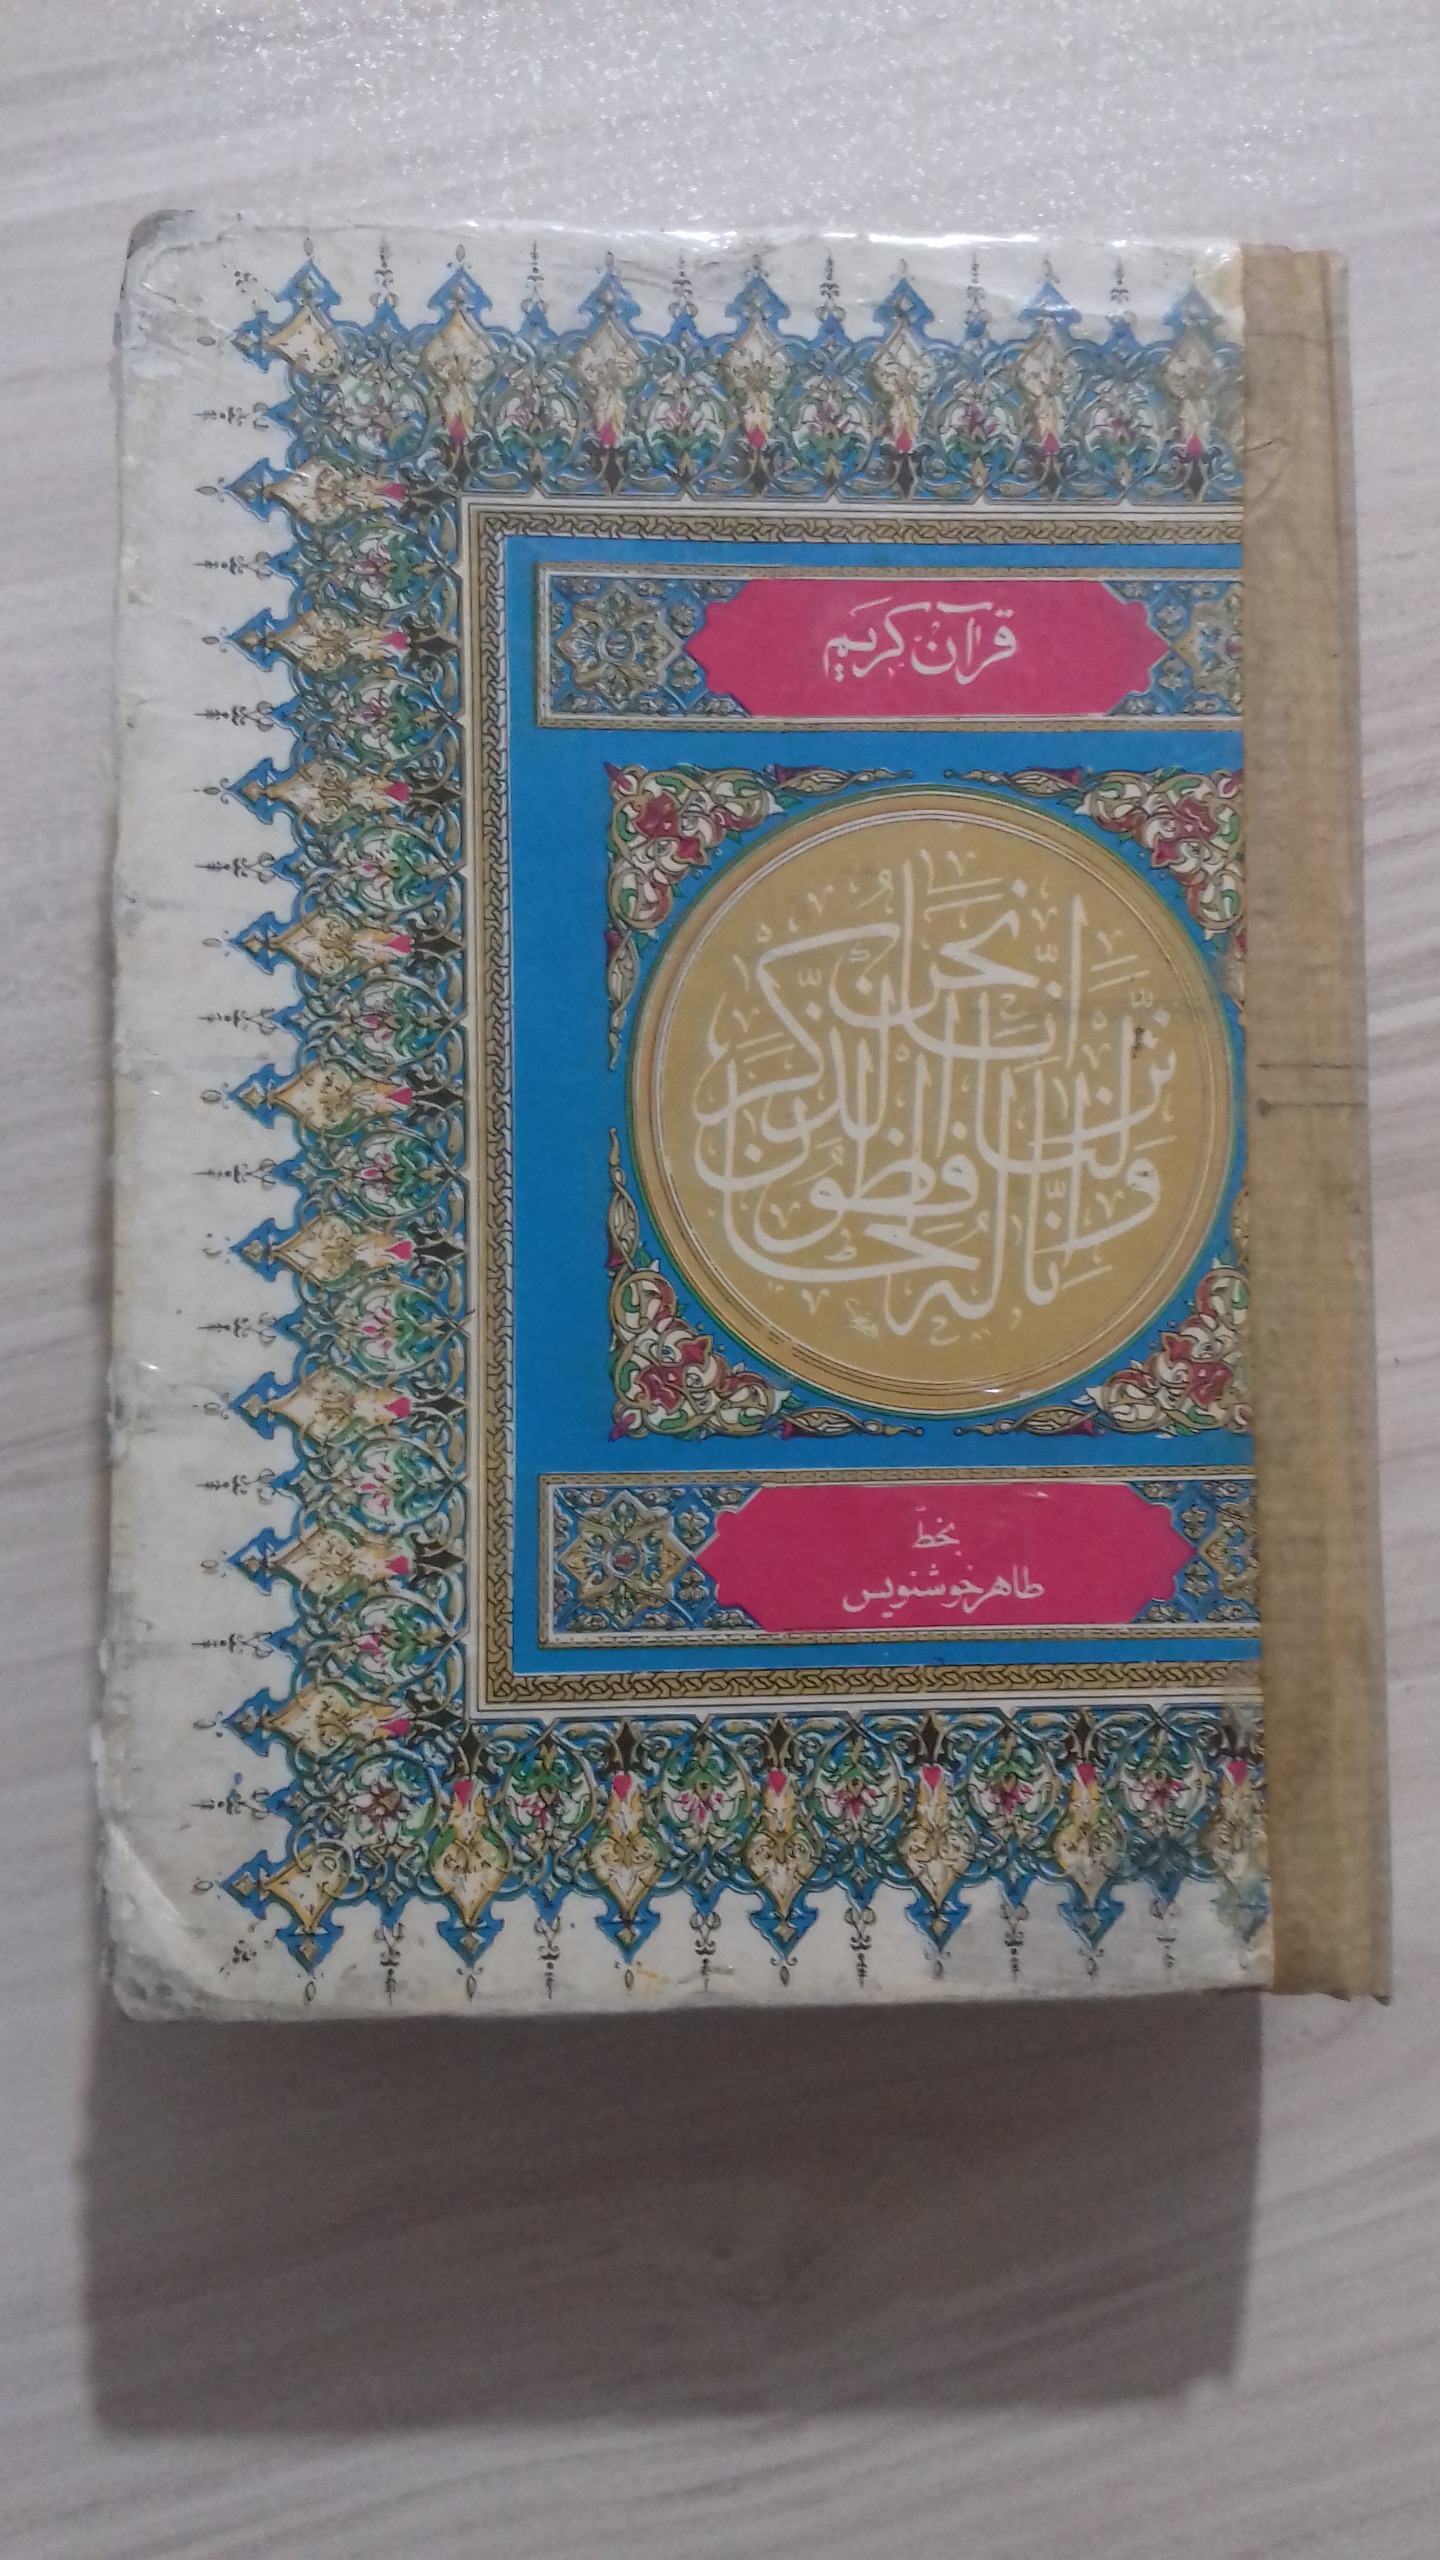 قرآن کریم
اِنّا نَحنُ نَزَّلنَا الذِّکرَ
وَ اِنّا لَهُ لَحافِظُونَ
بخطّ
طاهر خوشنویس